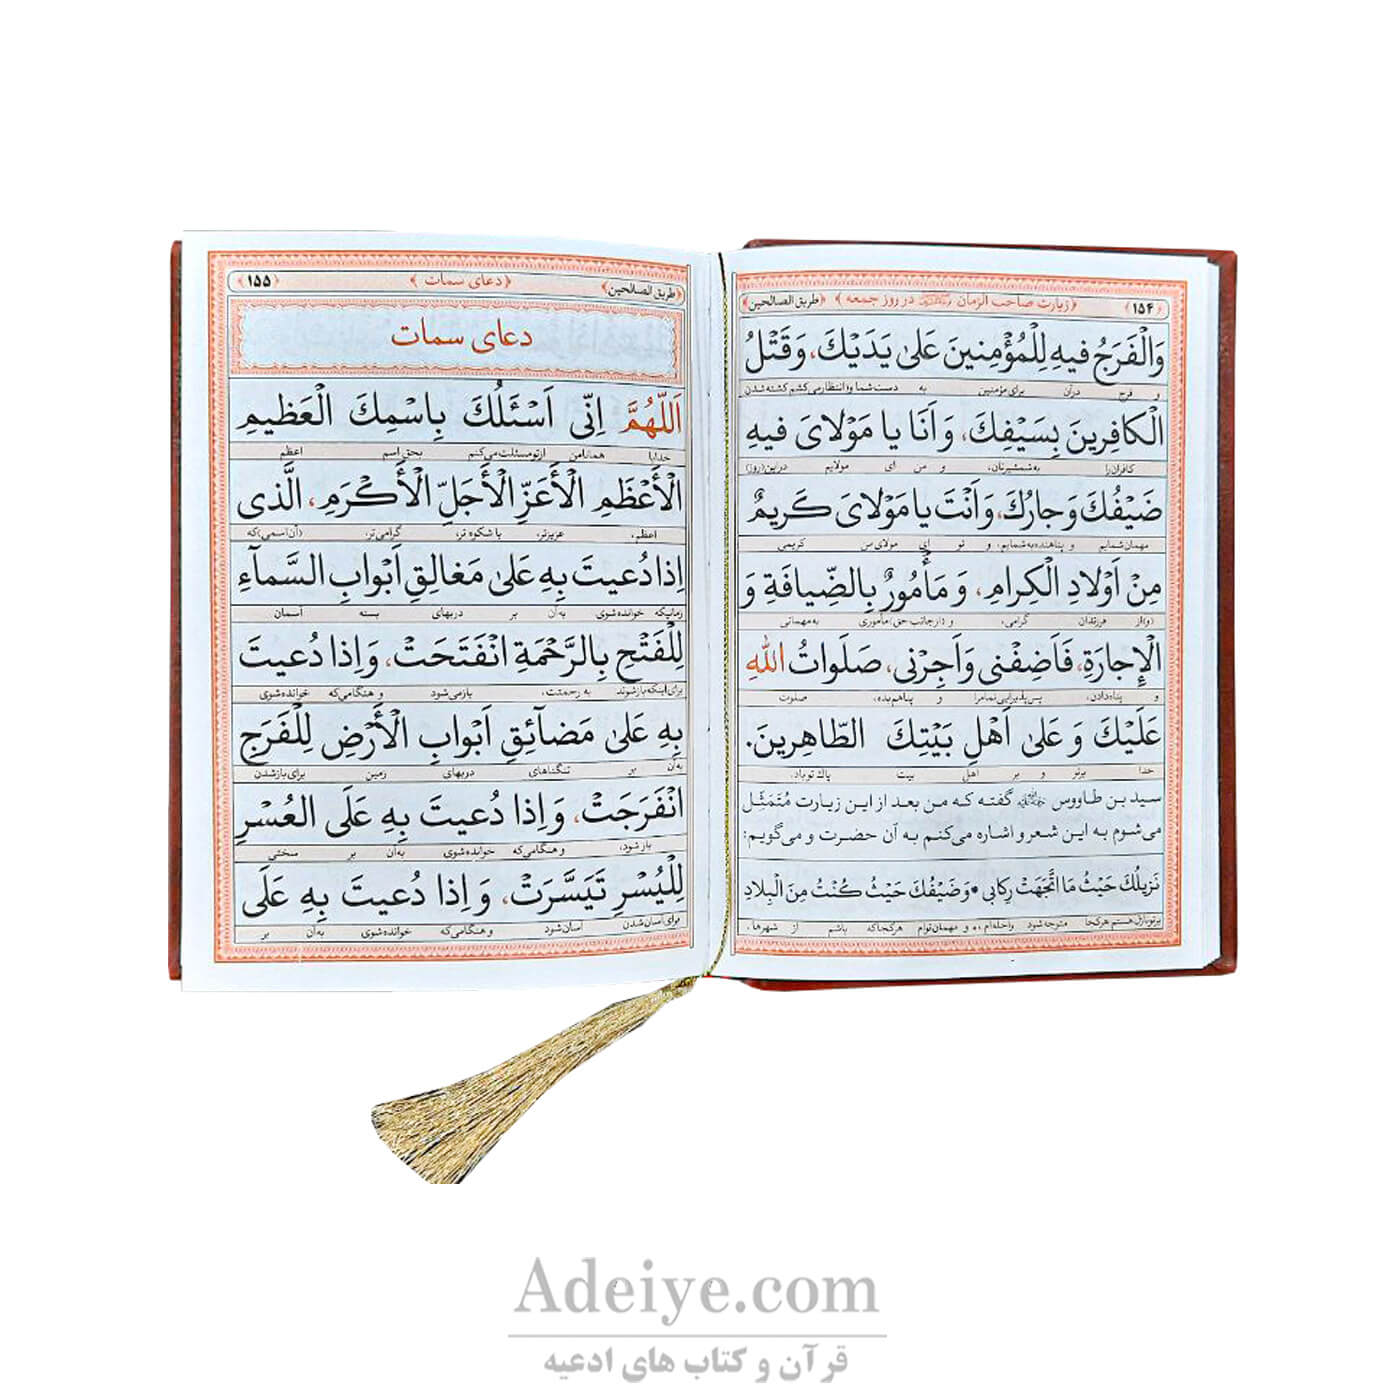 ﴿۱۵۴﴾ ﴿زیارت صاحب الزمان در روز جمعه﴾ ﴿طریق الصالحین﴾
وَالْفَرَجُ فیهِ لِلْمُؤْمِنینَ عَلیٰ یَدَیْكَ، وَ قَتْلُ
و فرج در آن برای مؤمنین به دست شما و انتظار می کشم کشته شدن
الْکافِرینَ بِسَیْفِكَ، وَ اَنَا یا مَوْلایَ فیهِ
کافران را به شمشیرتان، و من ای مولایم در این (روز)
ضَیْفُكَ وَ جارُكَ، وَ اَنْتَ یا مَوْلایَ کَریمٌ
مهمان شمایم و پناهنده به شمایم، و تو ای مولای من کریمی
مِنْ اَوْلادِ الْکِرامِ، وَ مَأْمُورٌ بِالضِّیافَةِ وَ
(و) از فرزندان گرامی، و (از جانب حق) مأموری به مهمانی
الْاِجارَةِ، فَاَضِفْنی وَ اَجِرْنی، صَلَواتُ اللهِ
و پناه دادن، پس پذیرایی نما مرا و پناهم بده، صلوت
عَلَیْكَ وَ عَلیٰ اَهْلِ بَیْتِكَ الطّاهِرینَ.
خدا برتو و بر اهل بیت پاك تو باد.
سید بن طاووس گفته که من بعد از این زیارت مُتَمَثِّل
می شوم به این شعر و اشاره می کنم به آن حضرت و می گویم:
نَزیلُكَ حَیْثُ مَا اتَّجَهَتْ رِکابی • وَ ضَیْفُكَ حَیْثُ کُنْتُ مِنَ الْبِلادِ
بر تو نازل هستم هر کجا متوجه شود راحله ام •• و مهمان توام هر کجا که باشم از شهرها.
﴿طریق الصالحین﴾ ﴿دعای سمات﴾ ﴿۱۵۵﴾
دعای سمات
اَللّٰهُمَّ اِنّی اَسْئَلُكَ بِاسْمِكَ الْعَظیمِ
خدایا همانا من از تو مسئلت می کنم بحق اسم اعظم
الْأَعْظَمِ الْأَعَزِّ الْأَجَلِّ الْأَکْرَمِ، الَّذی
اعظم، عزیزتر، با شکوه تر، گرامی تر، (آن اسمی) که
اِذا دُعیتَ بِهِ عَلیٰ مَغالِقِ اَبْوابِ السَّمآءِ
زمانیکه خوانده شوی به آن بر دربهای بسته آسمان
لِلْفَتْحِ بِالرَّحْمَةِ انْفَتَحَتْ، وَ اِذا دُعیتَ
برای اینکه باز شوند به رحمتت، باز می شود و هنگامی که خوانده شوی
بِهِ عَلیٰ مَضآئِقِ اَبْوابِ الْأَرْضِ لِلْفَرَجِ
به آن بر تنگناهای دربهای زمین برای باز شدن
انْفَرَجَتْ، وَ اِذا دُعیتَ بِهِ عَلَی الْعُسْرِ
باز شود، و هنگامی که خوانده شوی به آن بر سختی
لِلْیُسْرِ تَیَسَّرَتْ، وَ اِذا دُعیتَ بِهِ عَلَی
برای آسان شدن آسان شود و هنگامی که خوانده شوی به آن بر
Adeiye.com
قرآن و کتاب های ادعیه